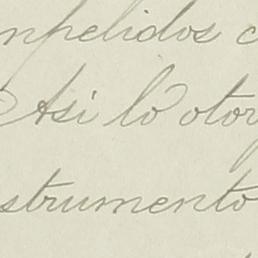 npelidos c
Asi lo otor
strumento